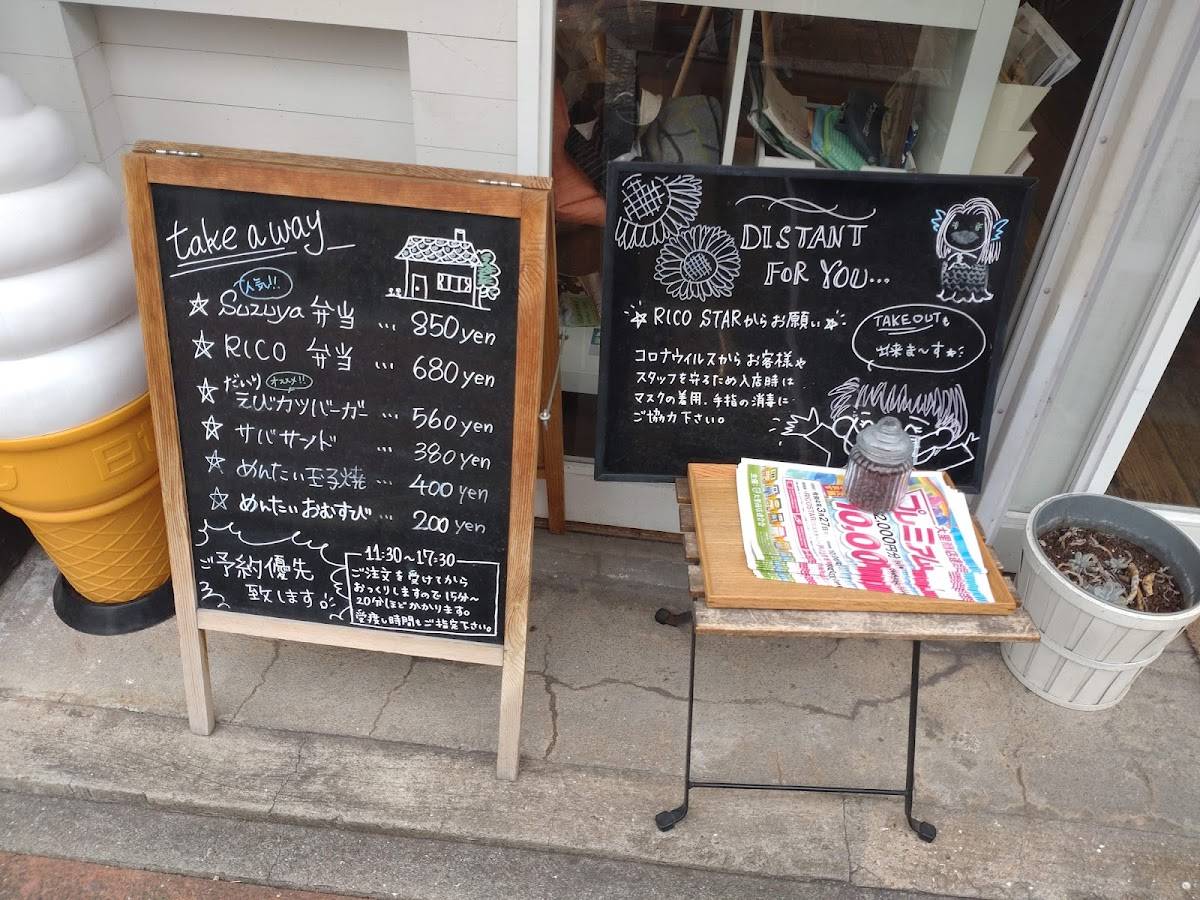 take away
人気!!
☆ Suzuya 弁当 … 850yen
☆ RICO 弁当 … 680yen
オススメ!!
☆ えびカツバーガー … 560yen
☆ サバサンド … 380yen
☆ めんたい玉子焼 … 400yen
☆ めんたいおむすび … 200yen
ご予約優先
致します。
11:30～17:30
ご注文を受けてから
おつくりしますので 15分～
20分ほどかかります。
受渡し時間もご指定下さい。
RICO
DISTANT
FOR YOU...
☆ RICO STARからお願い☆
コロナウイルスから お客様や
スタッフを守るため 入店時は
マスクの着用、手指の消毒に
ご協力下さい。
TAKEOUTも
出来ま～す☆
プレミアム
2,000円分
10,000
3月27日